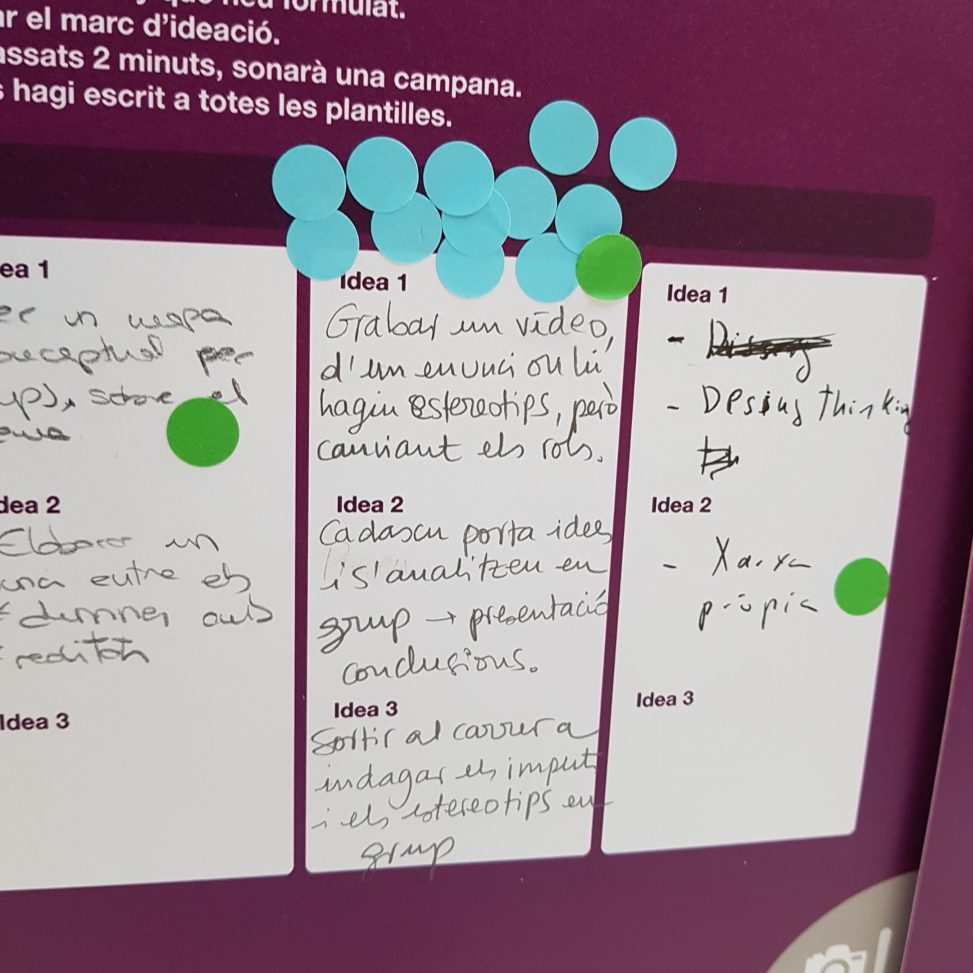 formulat.
ar el marc d'ideació.
assats 2 minuts, sonarà una campana.
s hagi escrit a totes les plantilles.
ea 1
er un mapa
onceptual per
ups, sobre el
dea 2
Elaborar un
una entre els
amb
Idea 3
Idea 1
Grabar un vídeo,
d'un enunci on hi
hagin estereotips, però
canviant els rols.
Idea 2
Cadascu porta idees
i s'analitzen en
grup → presentació
conclusions.
Idea 3
Sortir al carrer a
indagar els imput
i els estereotips en
grup
Idea 1
- Desing thinking
Idea 2
- Xarxa
pròpia
Idea 3